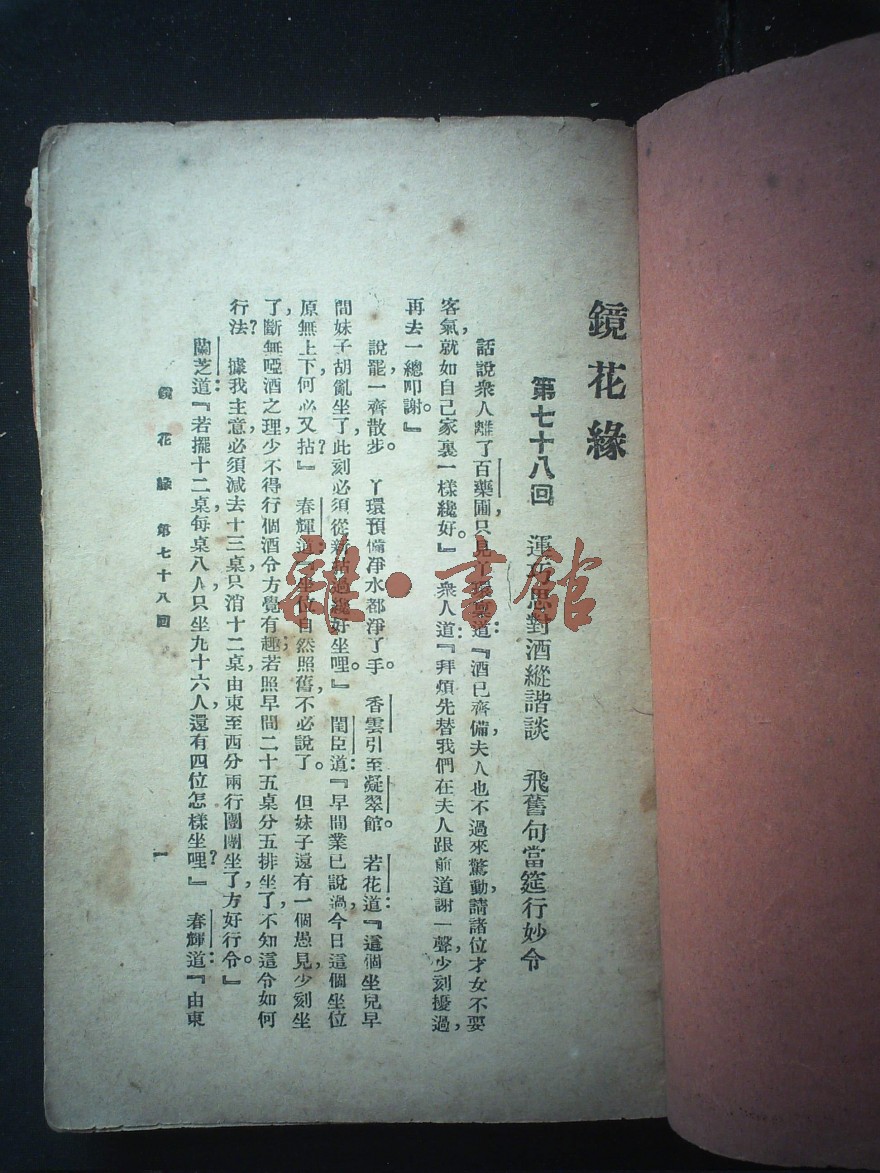 鏡花緣
第七十八回　運巧思對酒縱諧談　飛舊句當筵行妙令
話說衆人離了百藥圃，只見丫環稟道：『酒已齊備，夫人也不過來驚動，請諸位才女不要
客氣，就如自己家裏一樣纔好。』衆人道：『拜煩先替我們在夫人跟前道謝一聲，少刻擾過，
再去一總叩謝。』
說罷，一齊散步。丫環預備淨水都淨了手。香雲引至凝翠館。若花道：『這個坐兒早
間妹子胡亂坐了，此刻必須從新拈過纔好坐哩。』閨臣道：『早間業已說過，今日這個坐位
原無上下，何必又拈？』春輝道：『坐位自然照舊，不必說了。但妹子還有一個愚見：少刻坐
了，斷無啞酒之理，少不得行個酒令方覺有趣；若照早間二十五桌分五排坐了，不知這令如何
行法？據我主意，必須減去十三桌，只消十二桌，由東至西分兩行團團坐了，方好行令。』
蘭芝道：『若擺十二桌，每桌八人，只坐九十六人，還有四位怎樣坐哩？』春輝道：『由東
鏡花緣　第七十八回
一
雜·書館